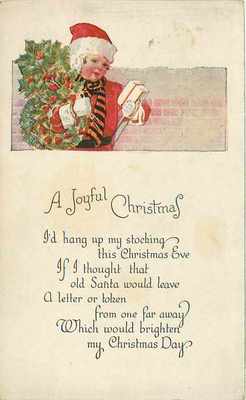 A Joyful Christmas
I'd hang up my stocking
this Christmas Eve
If I thought that
old Santa would leave
A letter or token
from one far away
Which would brighten
my Christmas Day